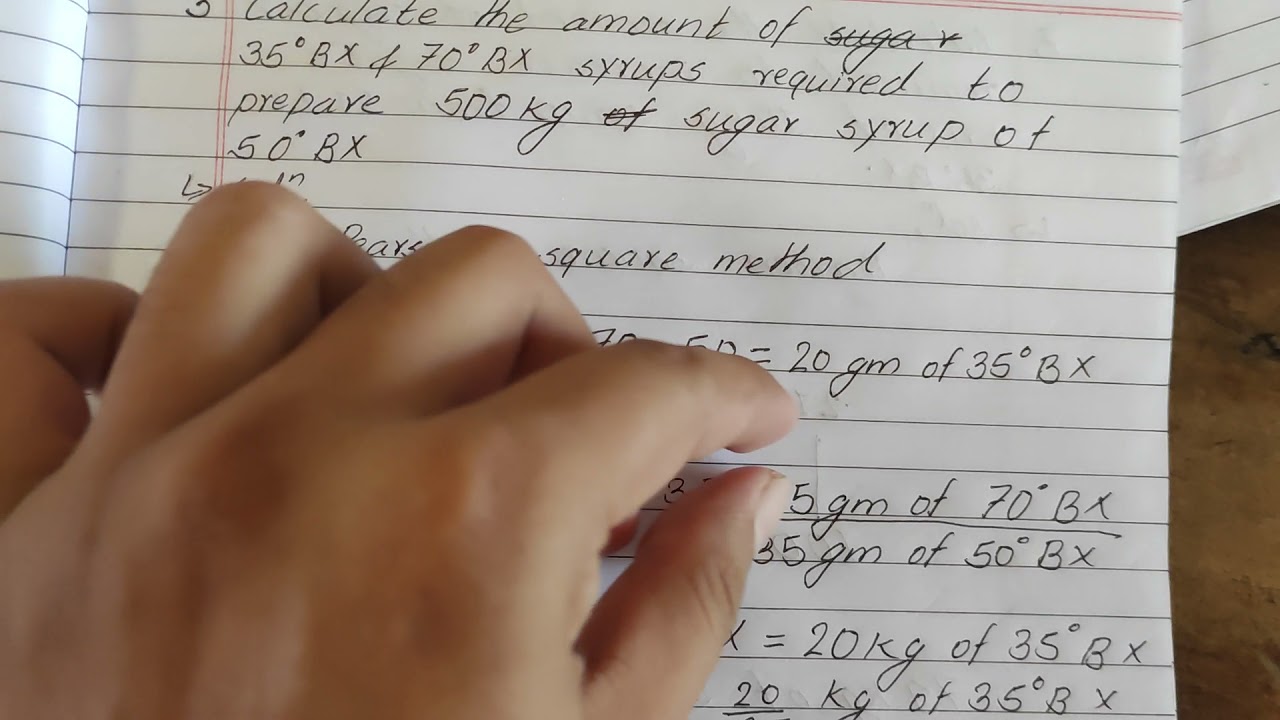 3 Calculate the amount of sugar
35°BX & 70°BX syrups required to
prepare 500kg of sugar syrup of
50°BX
square method
= 20 gm of 35°BX
5 gm of 70°BX
35 gm of 50°BX
= 20kg of 35°BX
20 kg of 35°BX